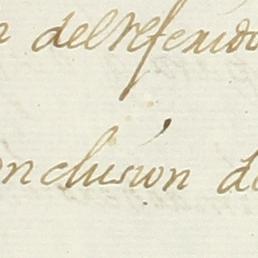 del referido
onclusión de